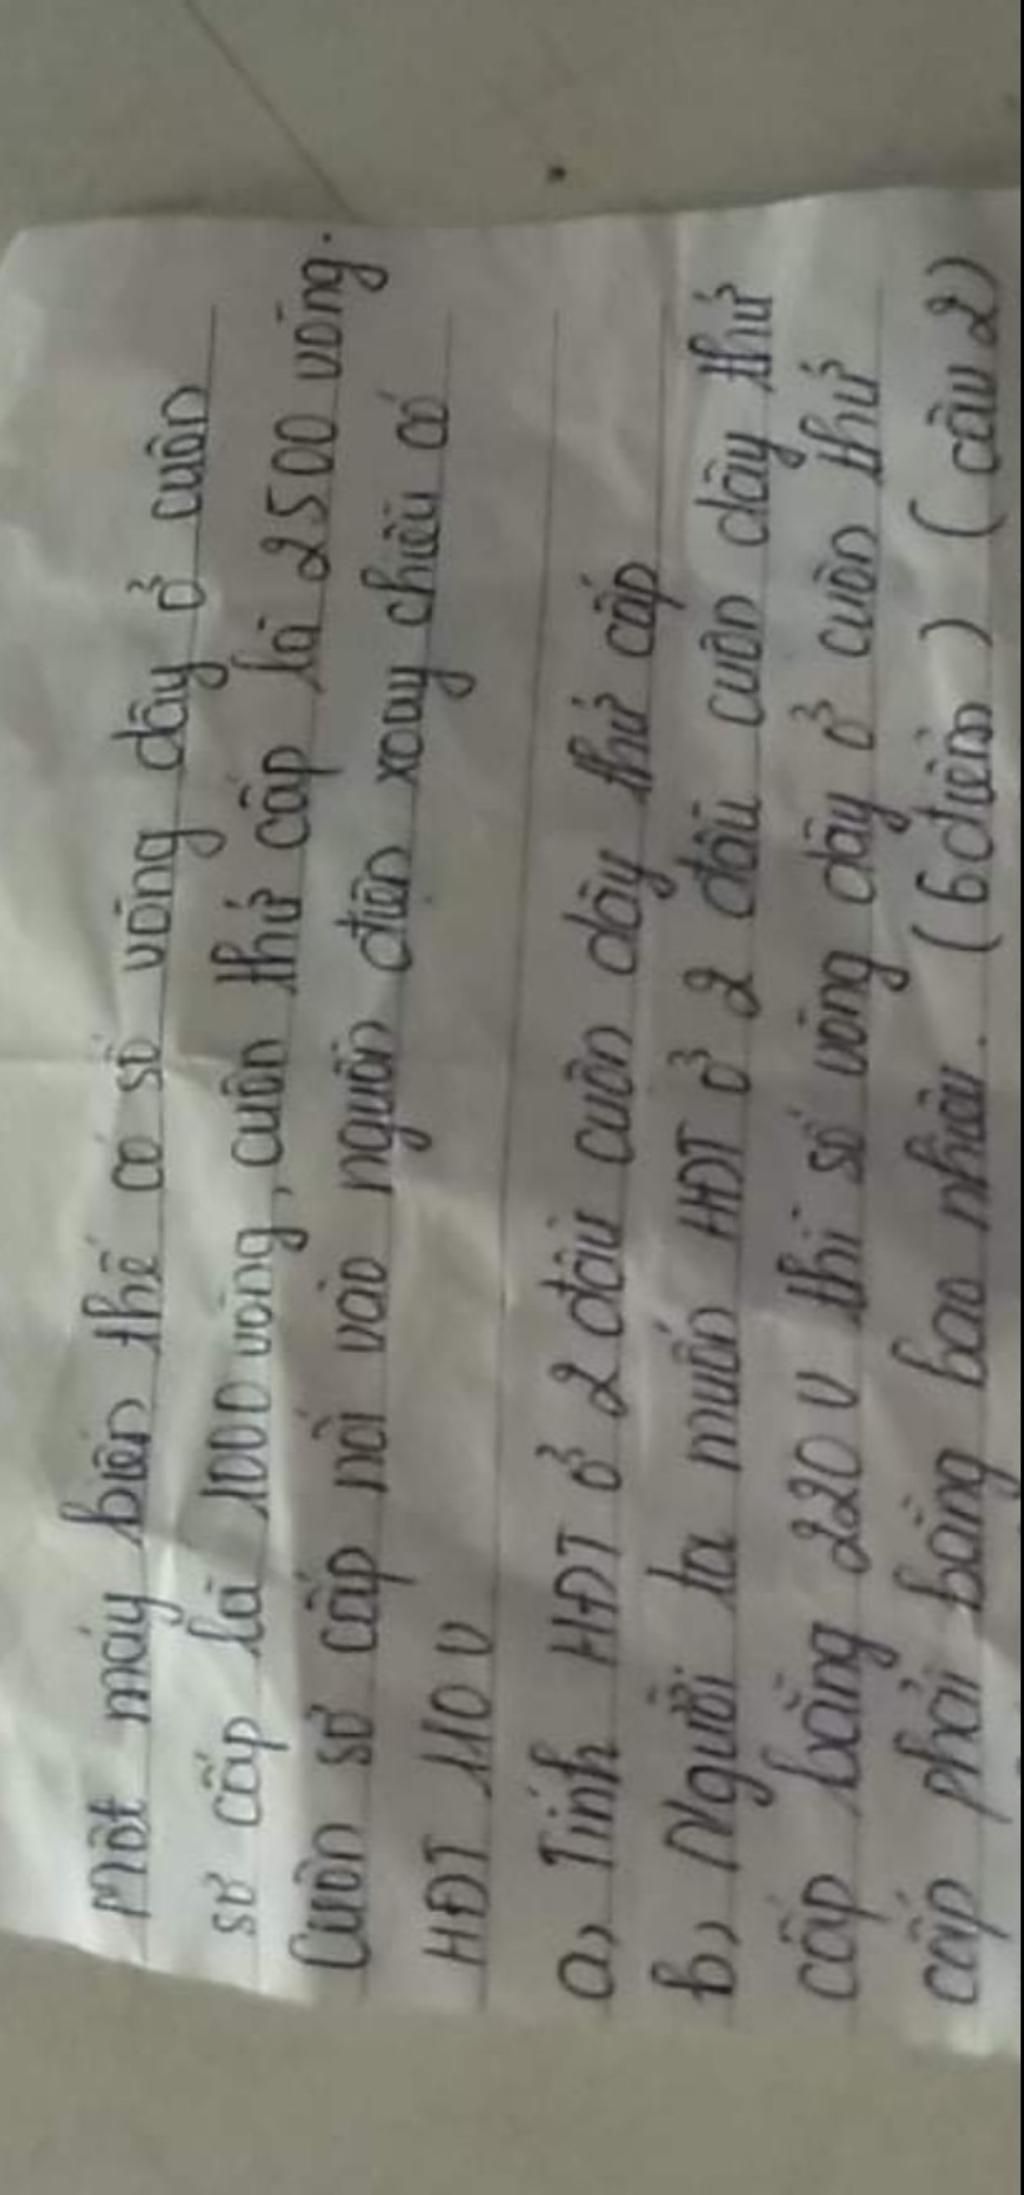 Một máy biến thế có số vòng dây ở cuộn
sơ cấp là 1000 vòng, cuộn thứ cấp là 2500 vòng.
Cuộn sơ cấp nối vào nguồn điện xoay chiều có
HĐT 110 V
a, Tính HĐT ở 2 đầu cuộn dây thứ cấp
b, Người ta muốn HĐT ở 2 đầu cuộn dây thứ
cấp bằng 220 V thì số vòng dây ở cuộn thứ
cấp phải bằng bao nhiêu. (6 điểm) (câu 2)